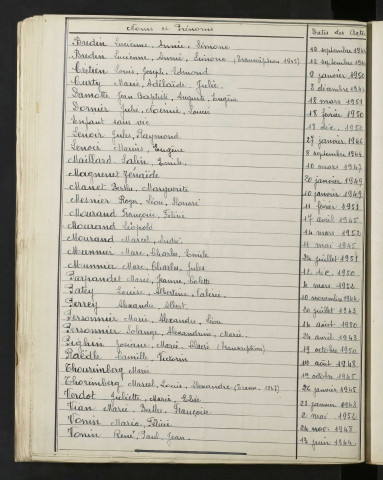 Noms et Prénoms Dates des Actes
Bredin Lucienne, Annie, Simone 10 septembre
Bredin Lucienne, Annie, Simone (Transcription 1945) 12 septembre
Cretien Louis, Joseph, Edmond 9 janvier 1950
Curty Marie, Adélaïde, Julie 2 décembre
Damotte Jean Baptiste, Auguste, Eugène 18 mars 1951
Dornier Jules, 18 février 1950
Enfant sans vie 13 déc. 1950
Lenoir Jules, Raymond 27 janvier 1946
Lenoir Marius, Eugène 8 septembre
Maillard Emile 10 mars 1947
Zénaïde 20 janvier 1949
Manet Berthe, Marguerite 10 janvier
Mesnier Roger, Léon, Honoré 11 février 1951
Mourand François, 17 avril 1945
Mourand Léopold 14 mars 1952
Mourand Marcel, André 11 mai 1945
Munnier Marc, Charles, Emile 24 juillet 1951
Munnier Marc, Charles, Jules 12 déc. 1950
Marie, Jeanne, 4 mars 1952
Patey Louise, Albertine, Valérie 10 novembre
Perrey Alexandre, Albert 20 juillet 1943
Personnier Marie, Alexandre, Léon 14 août 1950
Personnier Solange, Alexandrine, Marie 24 avril 1943
Marie, (Transcription) 19 octobre 1950
Camille, Victorin 19 août 1948
Thourimberg Marie 19 octobre 1945
Marcel, Louis, Alexandre 26 janvier 1948
Verdot Juliette, Marie, Elise 22 janvier 1943
Vian Marie, Berthe, Françoise 2 mai 1952
Vonin 24 nov. 1948
Vonin René, Paul, Jean 13 juin 1944